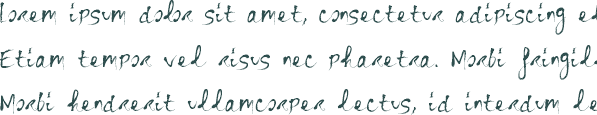 lorem ipsum dolor sit amet, consectetur adipiscing ed
Etiam tempor ved risus nec pharetra. Morbi fringid
Morbi hendrerit ullamcorper lectus, id interdum le